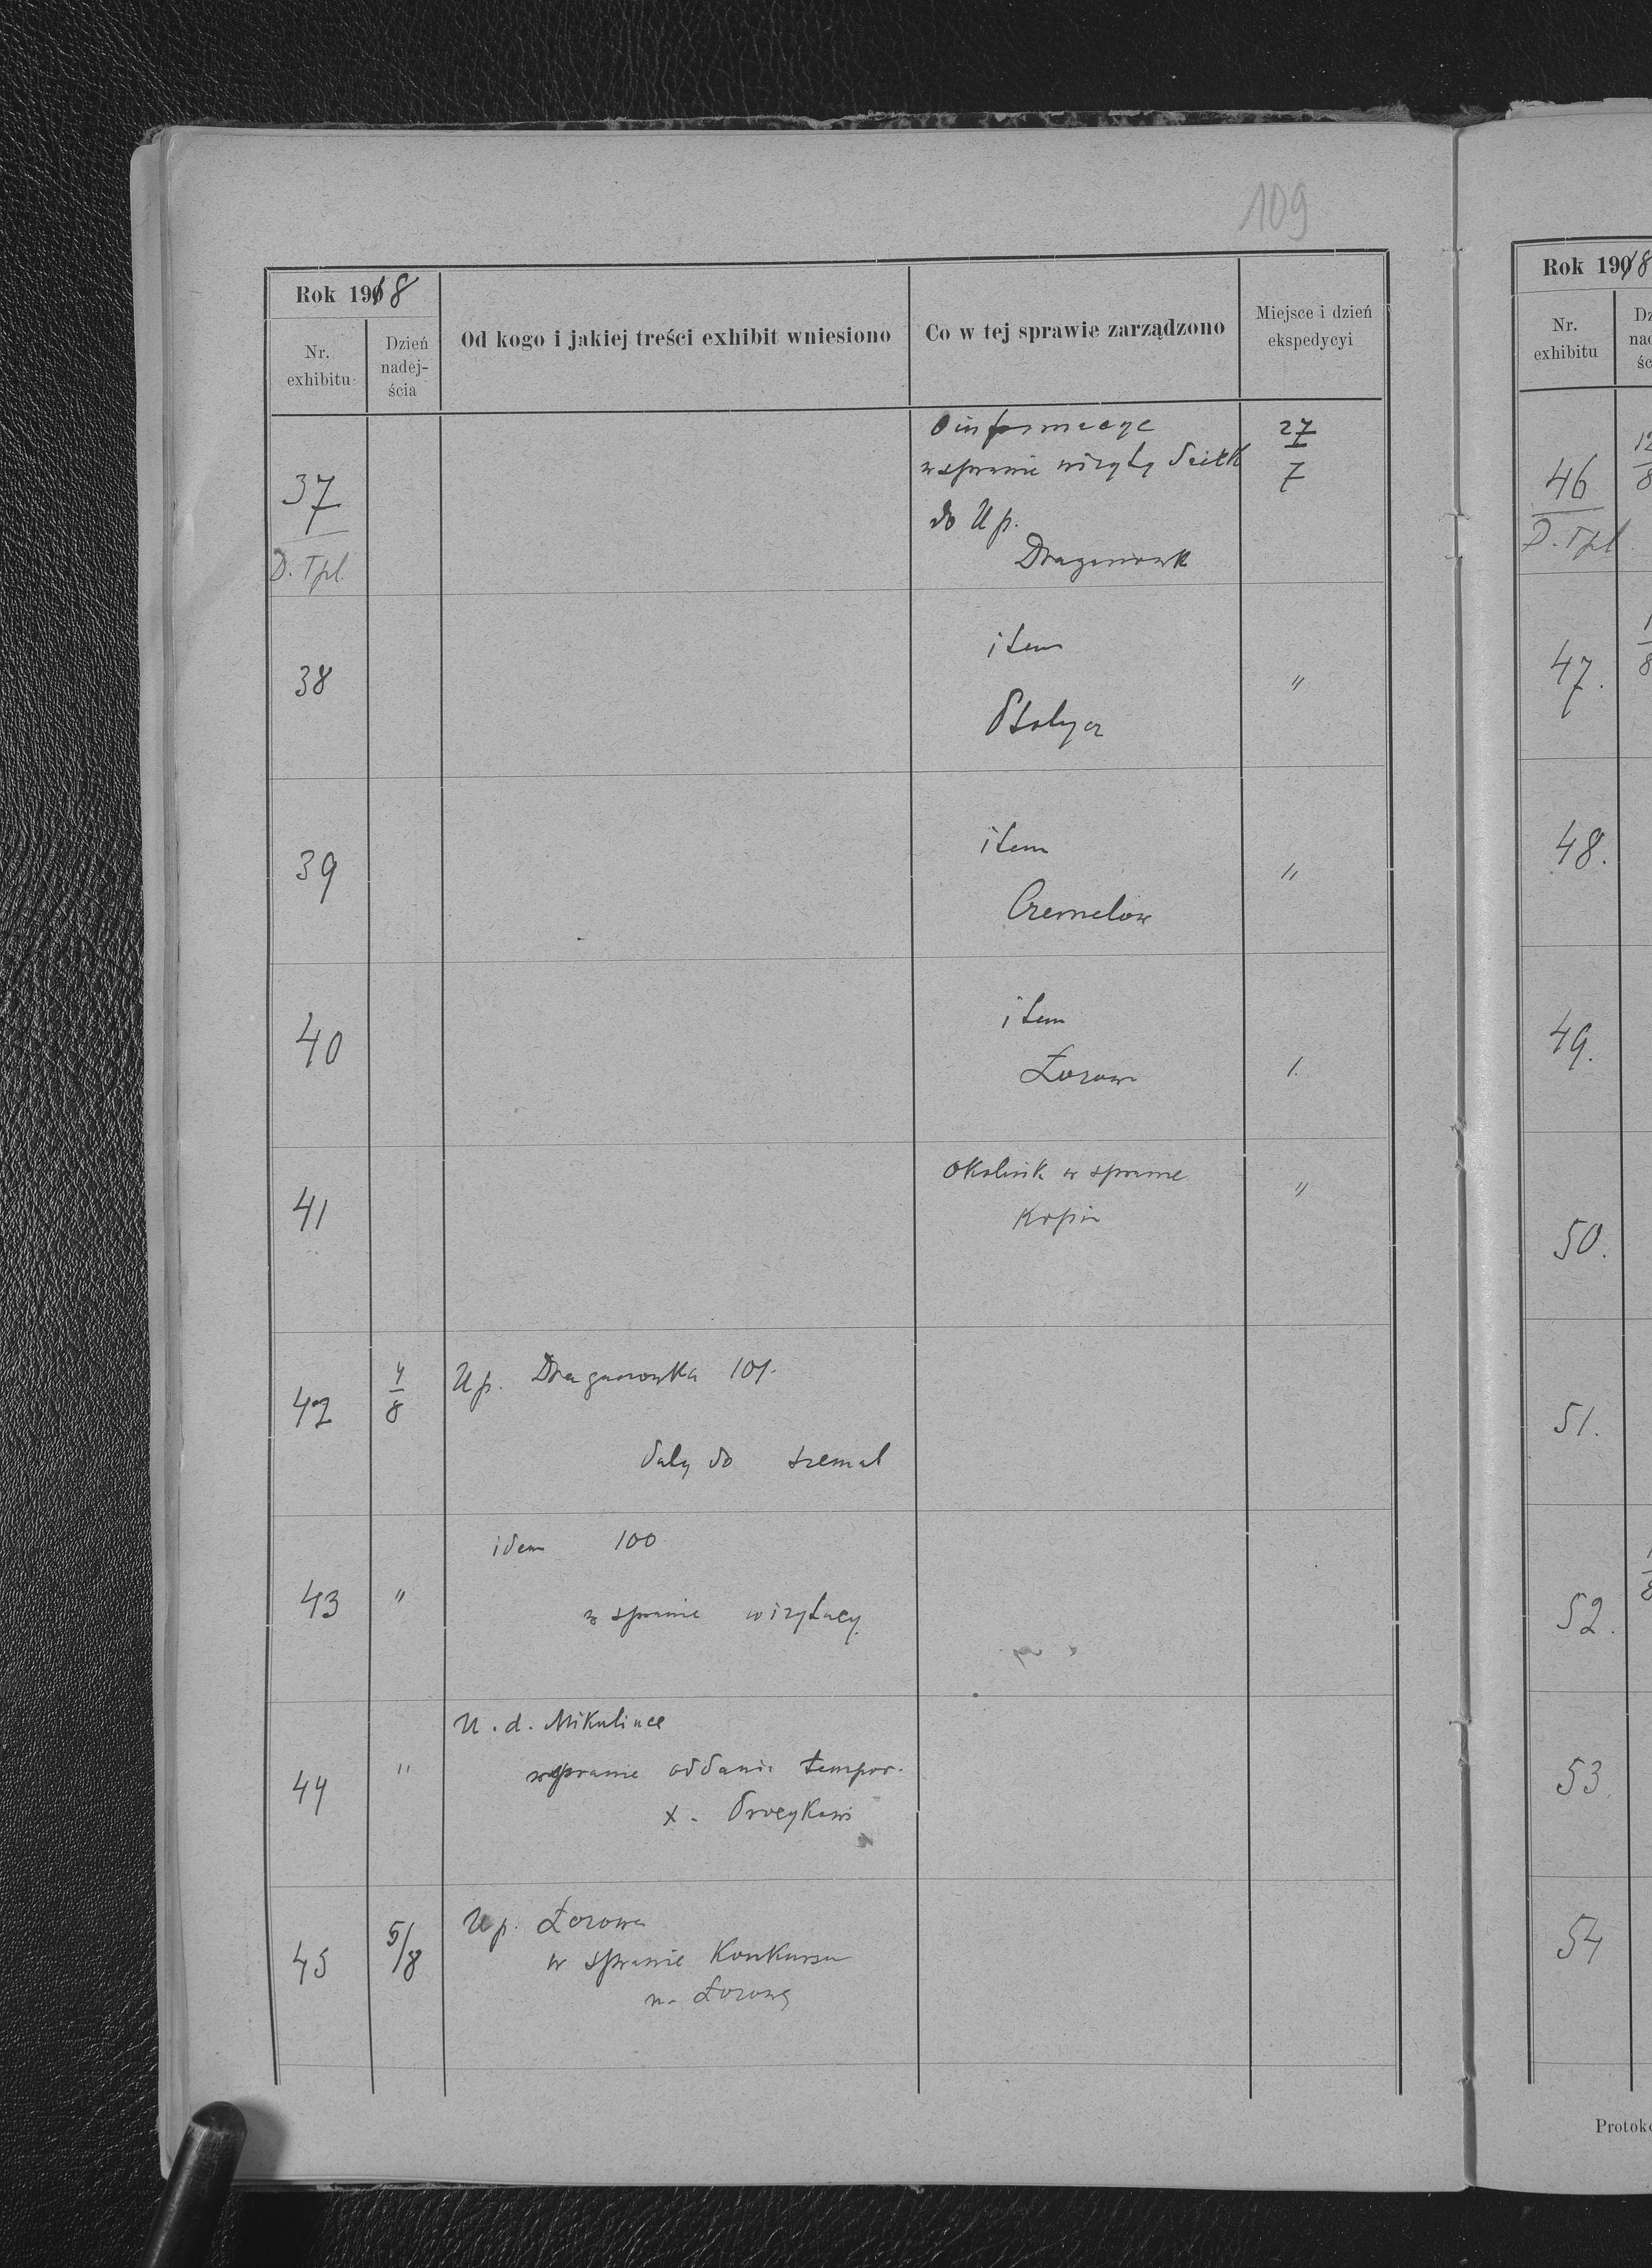 109
Rok 1918
Nr. exhibitu
Dzień nadej-ścia
Od kogo i jakiej treści exhibit wniesiono
Co w tej sprawie zarządzono
Miejsce i dzień ekspedycyi
37
D. Tpl.
O informacye
w sprawie wizyty
do Up.
27/7
38
item
"
39
item
Czernelow
"
40
item
Łozowa
41
Okolnik w sprawie
"
42
4/8
Up. Draganowka 101.
daty do szemat
43
"
idem 100
w sprawie wizytacy.
44
"
U. d. Mikulince
w sprawie oddania tempor.
x.
45
5/8
Up. Łozowa
w sprawie Konkursu
na Łozowę
Rok 1918
Nr. exhibitu
46
D. Tpl
12
8
47.
48.
49.
50.
51.
52.
53.
54
Protoko